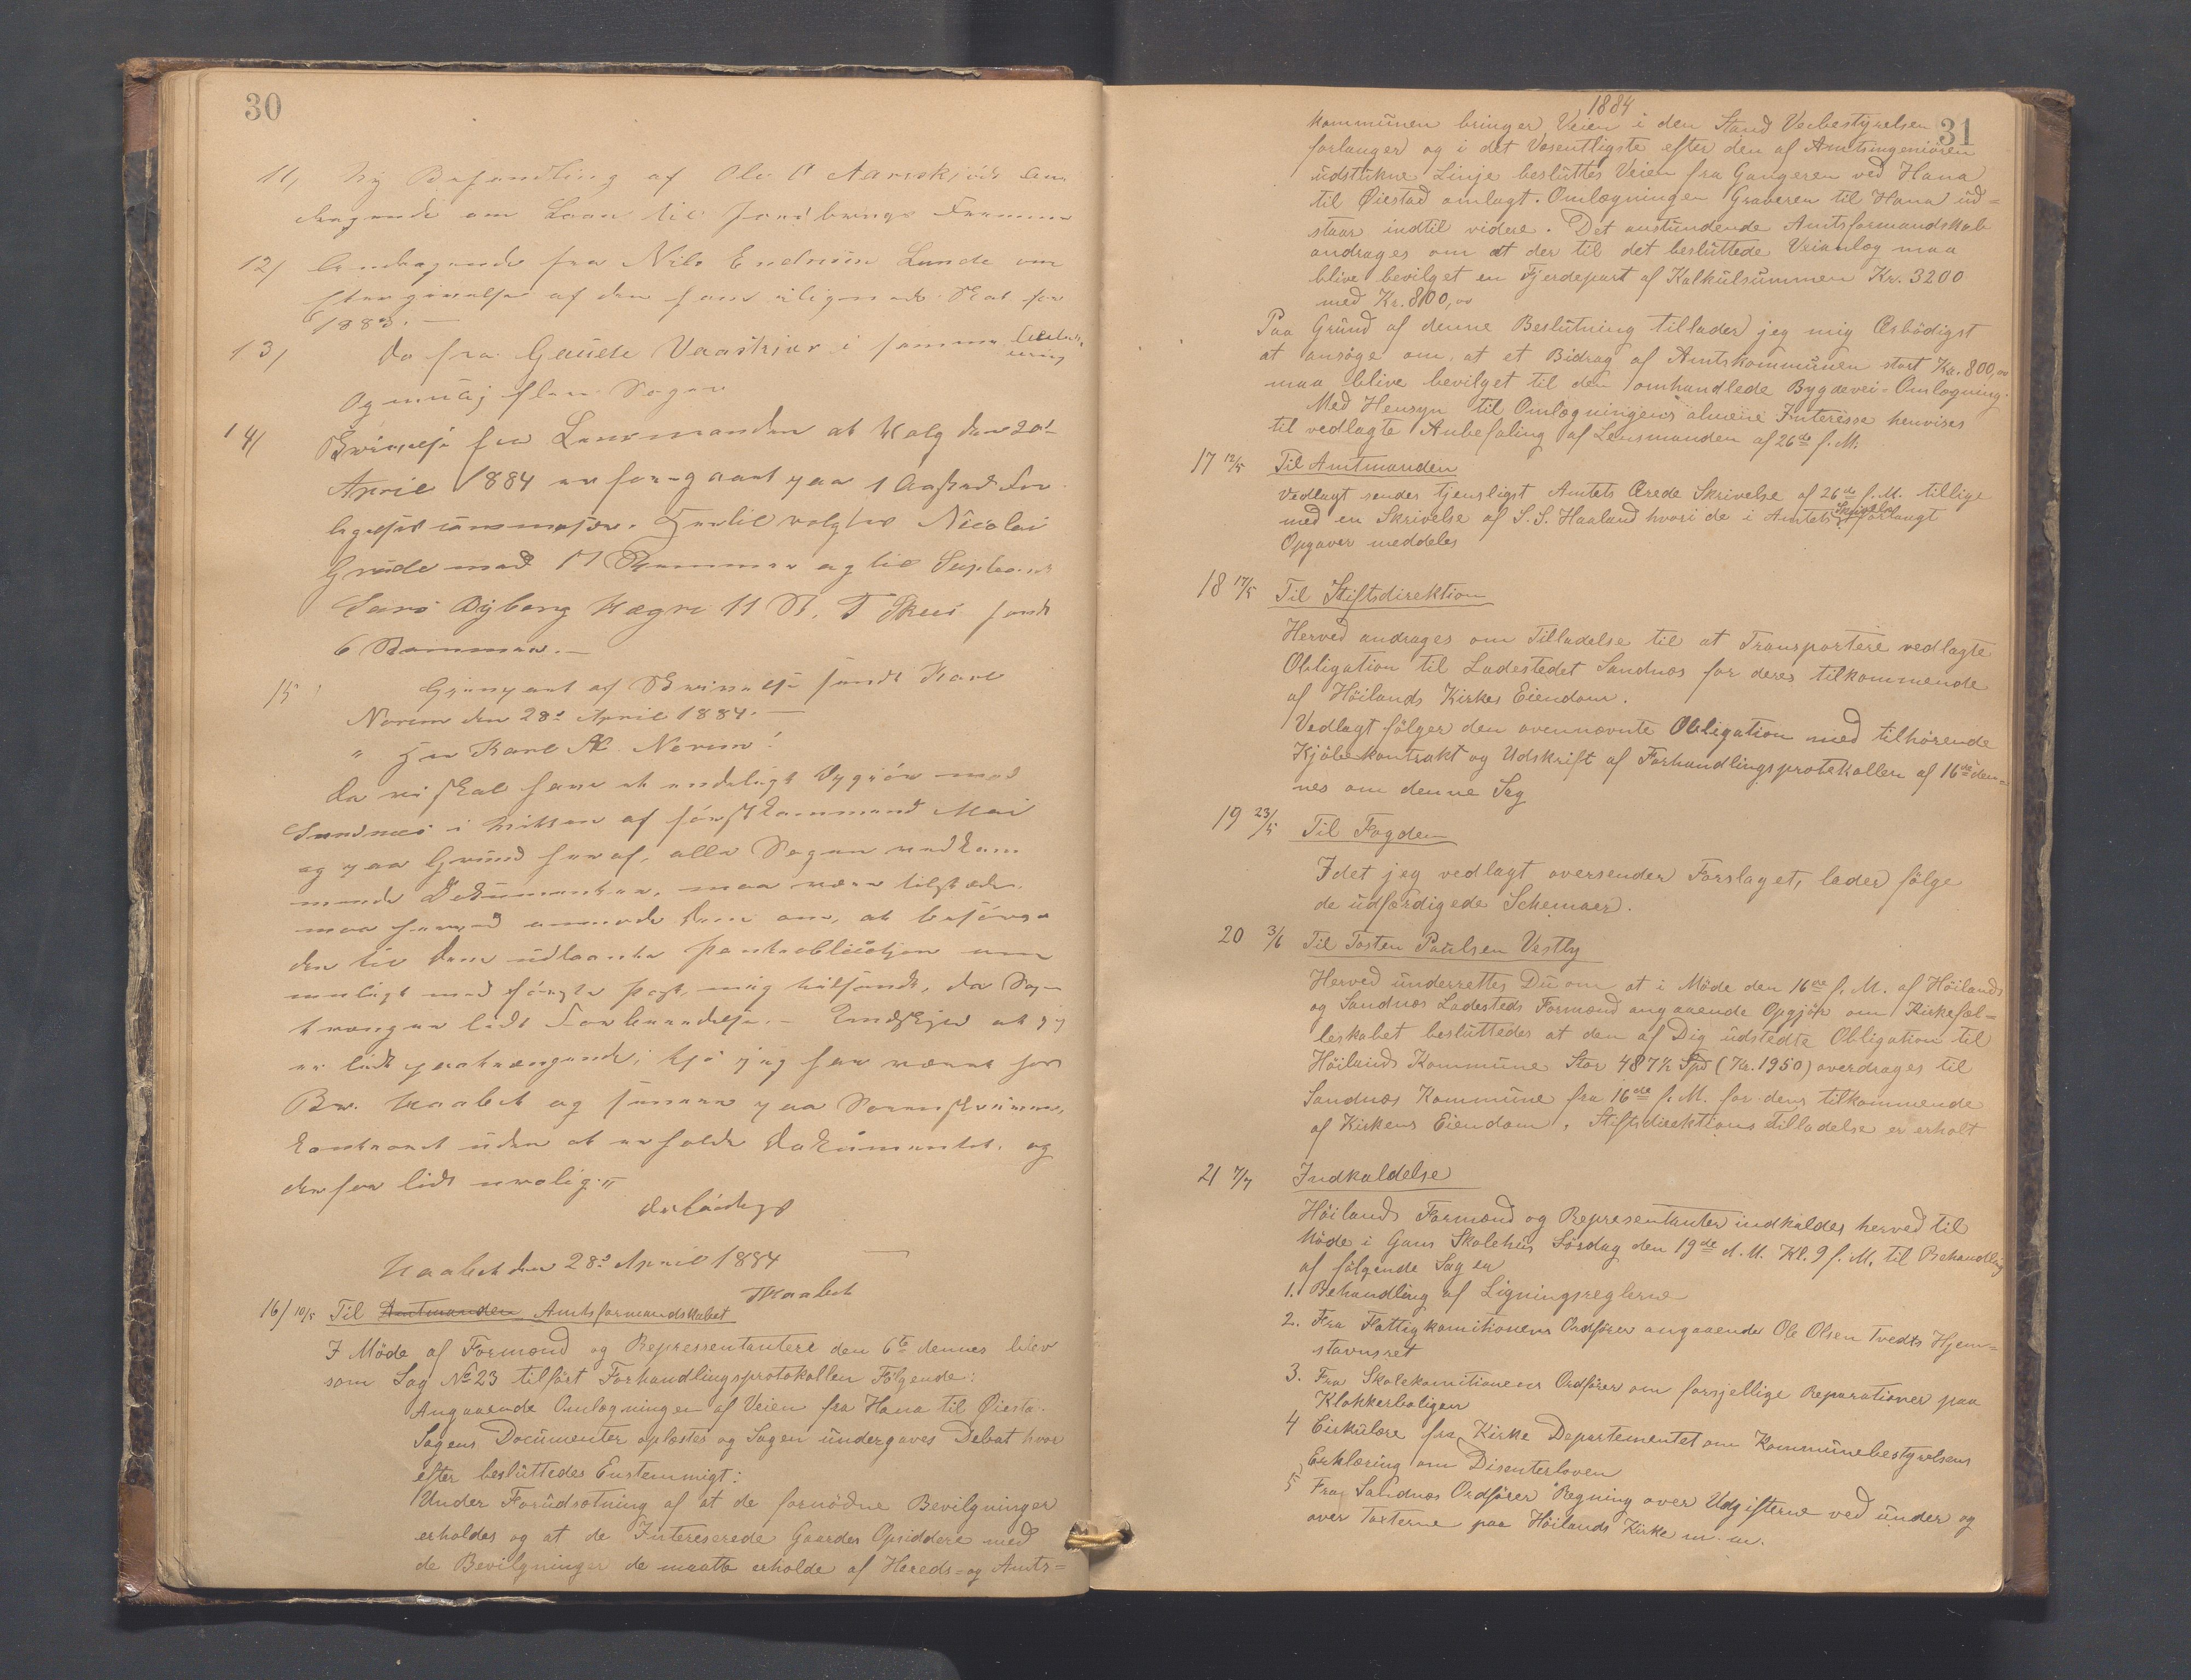 30
11, Ny Behandling af Ole A Aarrestad An-
dragende om Laan til Jordbrugs Fremme
12, Andragende fra Nils Endresen Lunde om
Eftergivelse af den ham ilignede Skat for
1883.—
13, do fra Gaute Vaaskjær i samme
Og muligt flere Sager
14, Skrivelse fra Lensmanden at Valg den 20de
April 1884 er foregaaet paa 1 Aastad For-
ligelseskommissær. Hertil valgtes Nicolai
Grude med 17 Stemmer og til Supleant
Lars Dybing Hegre 11 St. T Skeie havde
6 Stemmer.—
15, Gjenpart af Skrivelse sendt Karl
Norem den 28de April 1884.—
" Hr Karl A. Norem!
Da vi skal have et endeligt Opgjør med
Sandnæs i Midten af førstkommende Mai
og paa Grund heraf, alle Sagen vedkom-
mende Dokumenter, maa være tilstede,
maa herved anmode Dem om, at besørge
den til Dem udlaante Panteobligation om
muligt med første Post, mig tilsendt, da Sagen
trænger lidt Forberedelse.— Endskjøn at jeg
er lidt paatrængende,
og
derfor lidt urolig."
Ærbødigst
Haabet den 28de April 1884
16/ 10/5 Til Amtmanden Amtsformandskabet
I Möde af Formænd og Repressentantere den 6te dennes blev
som Sag No 23 tilfört Forhandlingsprotokollen Fölgende:
Angaaende Omlægningen af Veien fra Hana til Øiestad.
Sagens Documenter oplæstes og Sagen undergaves Debat hvor
efter besluttedes Enstemmigt:
Under Forudsætning af at de fornödne Bevilgninger
erholdes og at de Intereserede Gaardes Opsiddere med
de Bevilgninger de maatte erholde af Hereds= og Amts=
1884
31
Kommunen bringer Veien i den Stand Veibestyrelsen
forlanger og i det Væsentligste efter den af Amtsingeniören
udstukne Linje besluttes Veien fra Gangeren ved Hana
til Øiestad omlagt. Omlægningen Graveren til Hana ud=
staar indtil videre. Det anstundende Amtsformandskab
andrages om at der til det besluttede Veianlæg maa
blive bevilget en Fjerdepart af Kalkulsummen Kr. 3200
med Kr. 800,00
Paa Grund af denne Beslutning tillader jeg mig Ærbödigst
at ansöge om, at et Bidrag af Amtskommunen stort Kr. 800,00
maa blive bevilget til den omhandlede Bygdevei-Omlægning.
Med Hensyn til Omlægningens almene Interesse henvises
til vedlagte Anbefaling af Lensmanden af 26de f. M.
17 12/5 Til Amtmanden
Vedlagt sendes tjenstligst Amtets Ærede Skrivelse af 26de f. M. tillige
med en Skrivelse af S. S. Haaland hvori de i Amtets Skrivelse forlangt
Opgaver meddeles
18 17/5 Til Stiftsdirektion
Herved andrages om Tilladelse til at Transportere vedlagte
Obligation til Ladestedet Sandnæs for deres tilkommende
af Höilands Kirkes Eiendom.
Vedlagt fölger den ovennævnte Obligation med tilhörende
Kjöbekontrakt og Udskrift af Forhandlingsprotokollen af 16de den=
nes om denne Sag
19 23/5 Til Fogden
Idet jeg vedlagt oversender Forslaget, lader fölge
de udfærdigede Schemaer.
20 3/6 Til Tosten Paulsen Vestly
Herved underrettes Du om at i Möde den 16de f. M. af Höilands
og Sandnæs Ladesteds Formænd angaaende Opgjör om Kirkefæl=
leskabet besluttedes at den af Dig udstedte Obligation til
Höilands Kommune Stor 487½ Spd (Kr. 1950) overdrages til
Sandnæs Kommune fra 16de f. M. for dens tilkommende
af Kirkens Eiendom, Stiftsdirektions Tilladelse er erholt
21 7/7 Indkaldelse
Höilands Formænd og Representanter indkaldes herved til
Möde i Gans Skolehus Lörsdag den 19de d. M. Kl. 9 f. M. til Behandling
af fölgende Sager
1. Behandling af Ligningsreglerne
2. Fra Fattigkomitionens Ordförer angaaende Ole Olsen Tvedts Hjem=
stavnsret
3. Fra Skolekomitionens Ordförer om forsjellige Reparationer paa
Klokkerboligen
4 Cirkulære fra Kirke Departementet om Kommunebestyrelsens
Erklæring om Disenterloven
5 Fra Sandnæs Ordförer Regning over Udgifterne ved under og
over Taxterne paa Höilands Kirke m. m.